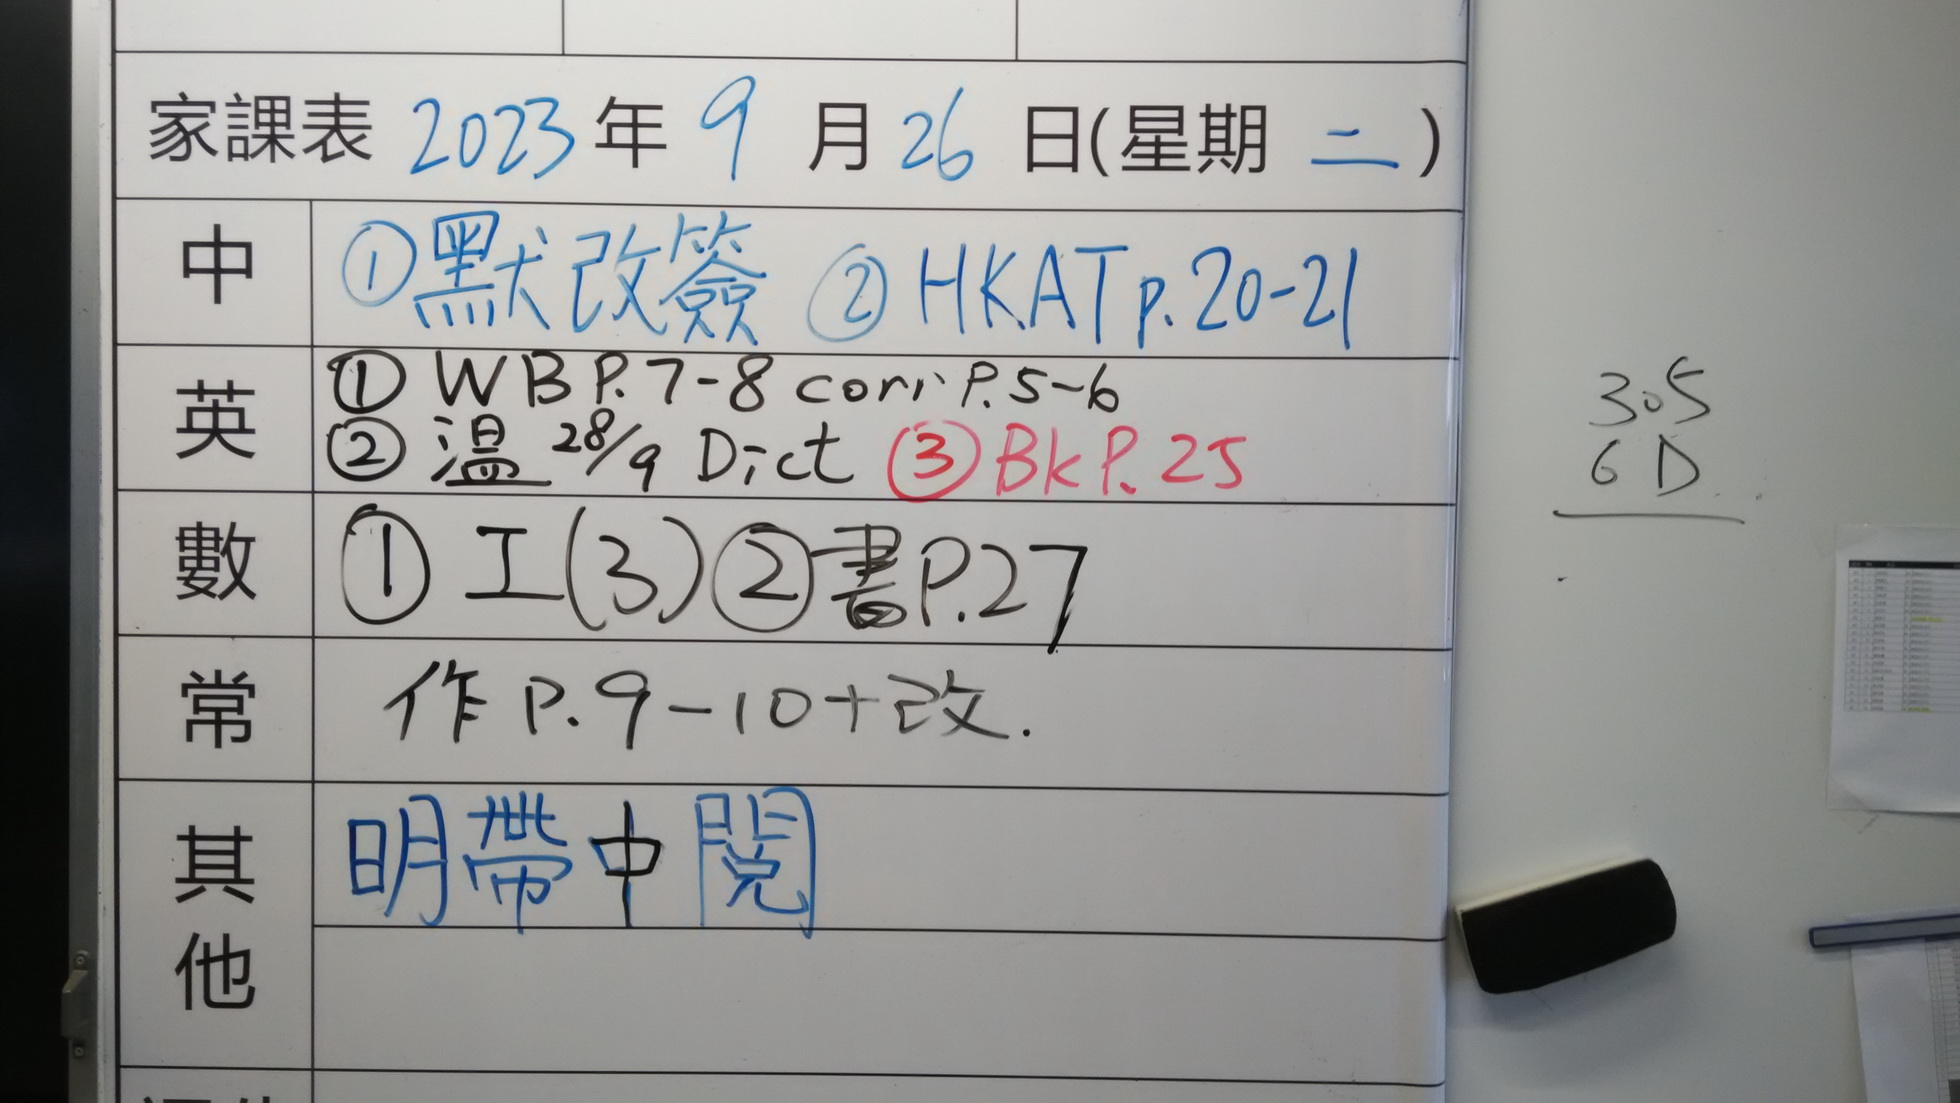 家課表 2023 年 9 月 26 日(星期 二 )
中 ①默改簽 ②HKAT p.20-21
英 ① WB P.7-8 corr P.5-6
② 温 28/9 Dict ③BK P.25
數 ① 工(3) ②書P.27
常 作 P.9-10+改.
其他 明帶中閱
305
6D